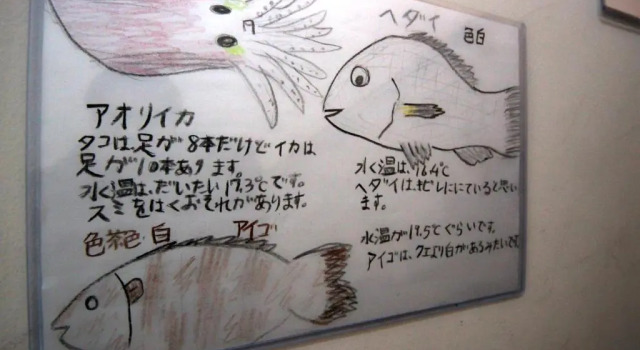 アオリイカ
タコは、足が8本だけどイカは
足が10本あります。
水温は、だいたい17.3℃です。
スミをはくおそれがあります。
色茶色 白
アイゴ
ヘダイ
色白
水温は、16.4℃
ヘダイは、
にていると思い
ます。
水温が17.5℃ぐらいです。
アイゴは、クエより白があるみたいです